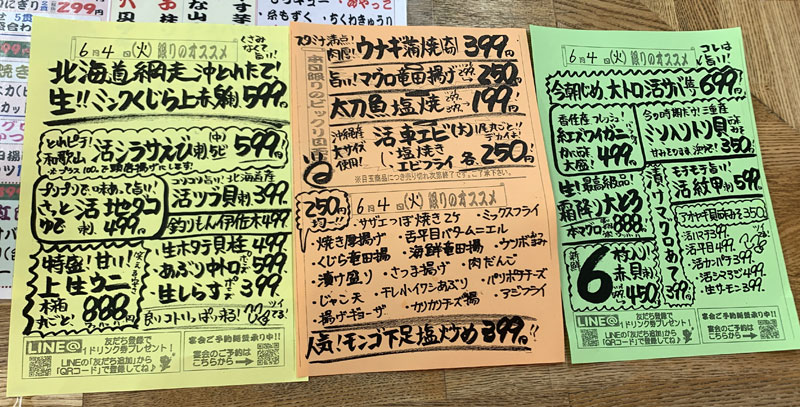 6月4日(火)限りのオススメ
くさみなくて旨い!
北海道網走沖とれたて!
生!!ミンクくじら上赤身刺599円
とれピチ!和歌山
活シラサえび(中)刺5ピ599円
※プラス100円で頭唐揚げ付
プリップリで味あって旨い!
さっとゆで活地ダコ刺499円
コリコリ旨い!北海道産
活ツブ貝刺399円
釣りもん伊佐木499
特盛!甘い!
上生ウニ
木箱丸ごと!888円
生ホタテ貝柱499
あぶり中トロポン酢599
生しらすポン酢399
LINE@
友だち登録で
1ドリンク券プレゼント!
LINEの「友だち追加」から
「QRコード」で登録してね♪
宴会ご予約絶賛承り中!!
宴会のご予約はこちらから
肉厚!ウナギ蒲焼399円
旨い!マグロ竜田揚げ250円
太刀魚塩焼199円
本日限りのビックリ目玉
沖縄産大サイズ使用!
活車エビ(大)
尾丸ごと!!デカイよ!
塩焼き
エビフライ
各250円!
※目玉商品につき売り切れ次第終了です。ご了承下さい。
250円均一
6月4日(火)限りのオススメ
・サザエつぼ焼き2ケ
・ミックスフライ
・焼き厚揚げ
・舌平目バタームニエル
・くじら竜田揚
・海鮮竜田揚
・漬け盛り
・さつま揚げ
・肉だんご
・じゃこ天
・干し小イワシあぶり
・パリポテチーズ
・揚げギョーザ
・カリカリチーズ揚
・アジフライ
人気!モンゴ下足塩炒め399円!!
6月4日(火)限りのオススメ
コレは旨い!
今朝じめ大トロ活サバ造699円
紅ズワイガニ
カニミソ大盛!499円
今の時期だけ!三重産
ミソハントリ貝
350円
生!最高級品!
霜降り大とろ
本マグロ888円
漬けマグロあて399円
モチモチ旨い!
活紋甲刺599円
6枚入り!赤貝刺
450円
アカヤギ貝
350
活ハマチ399
活平目499
活カンパチ399
活シマアジ499
生サーモン399
LINE@
友だち登録で
1ドリンク券プレゼント!
LINEの「友だち追加」から
「QRコード」で登録してね♪
宴会ご予約絶賛承り中!!
宴会のご予約はこちらから